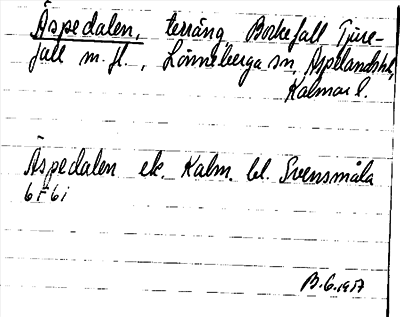 Äspedalen, terräng Borkefall Tjure-
fall m. fl., Lönneberga sn, Aspelandshd,
Kalmar l.
Äspedalen ek. Kalm. bl. Svensmåla
6 F 6 i
B.G. 1957